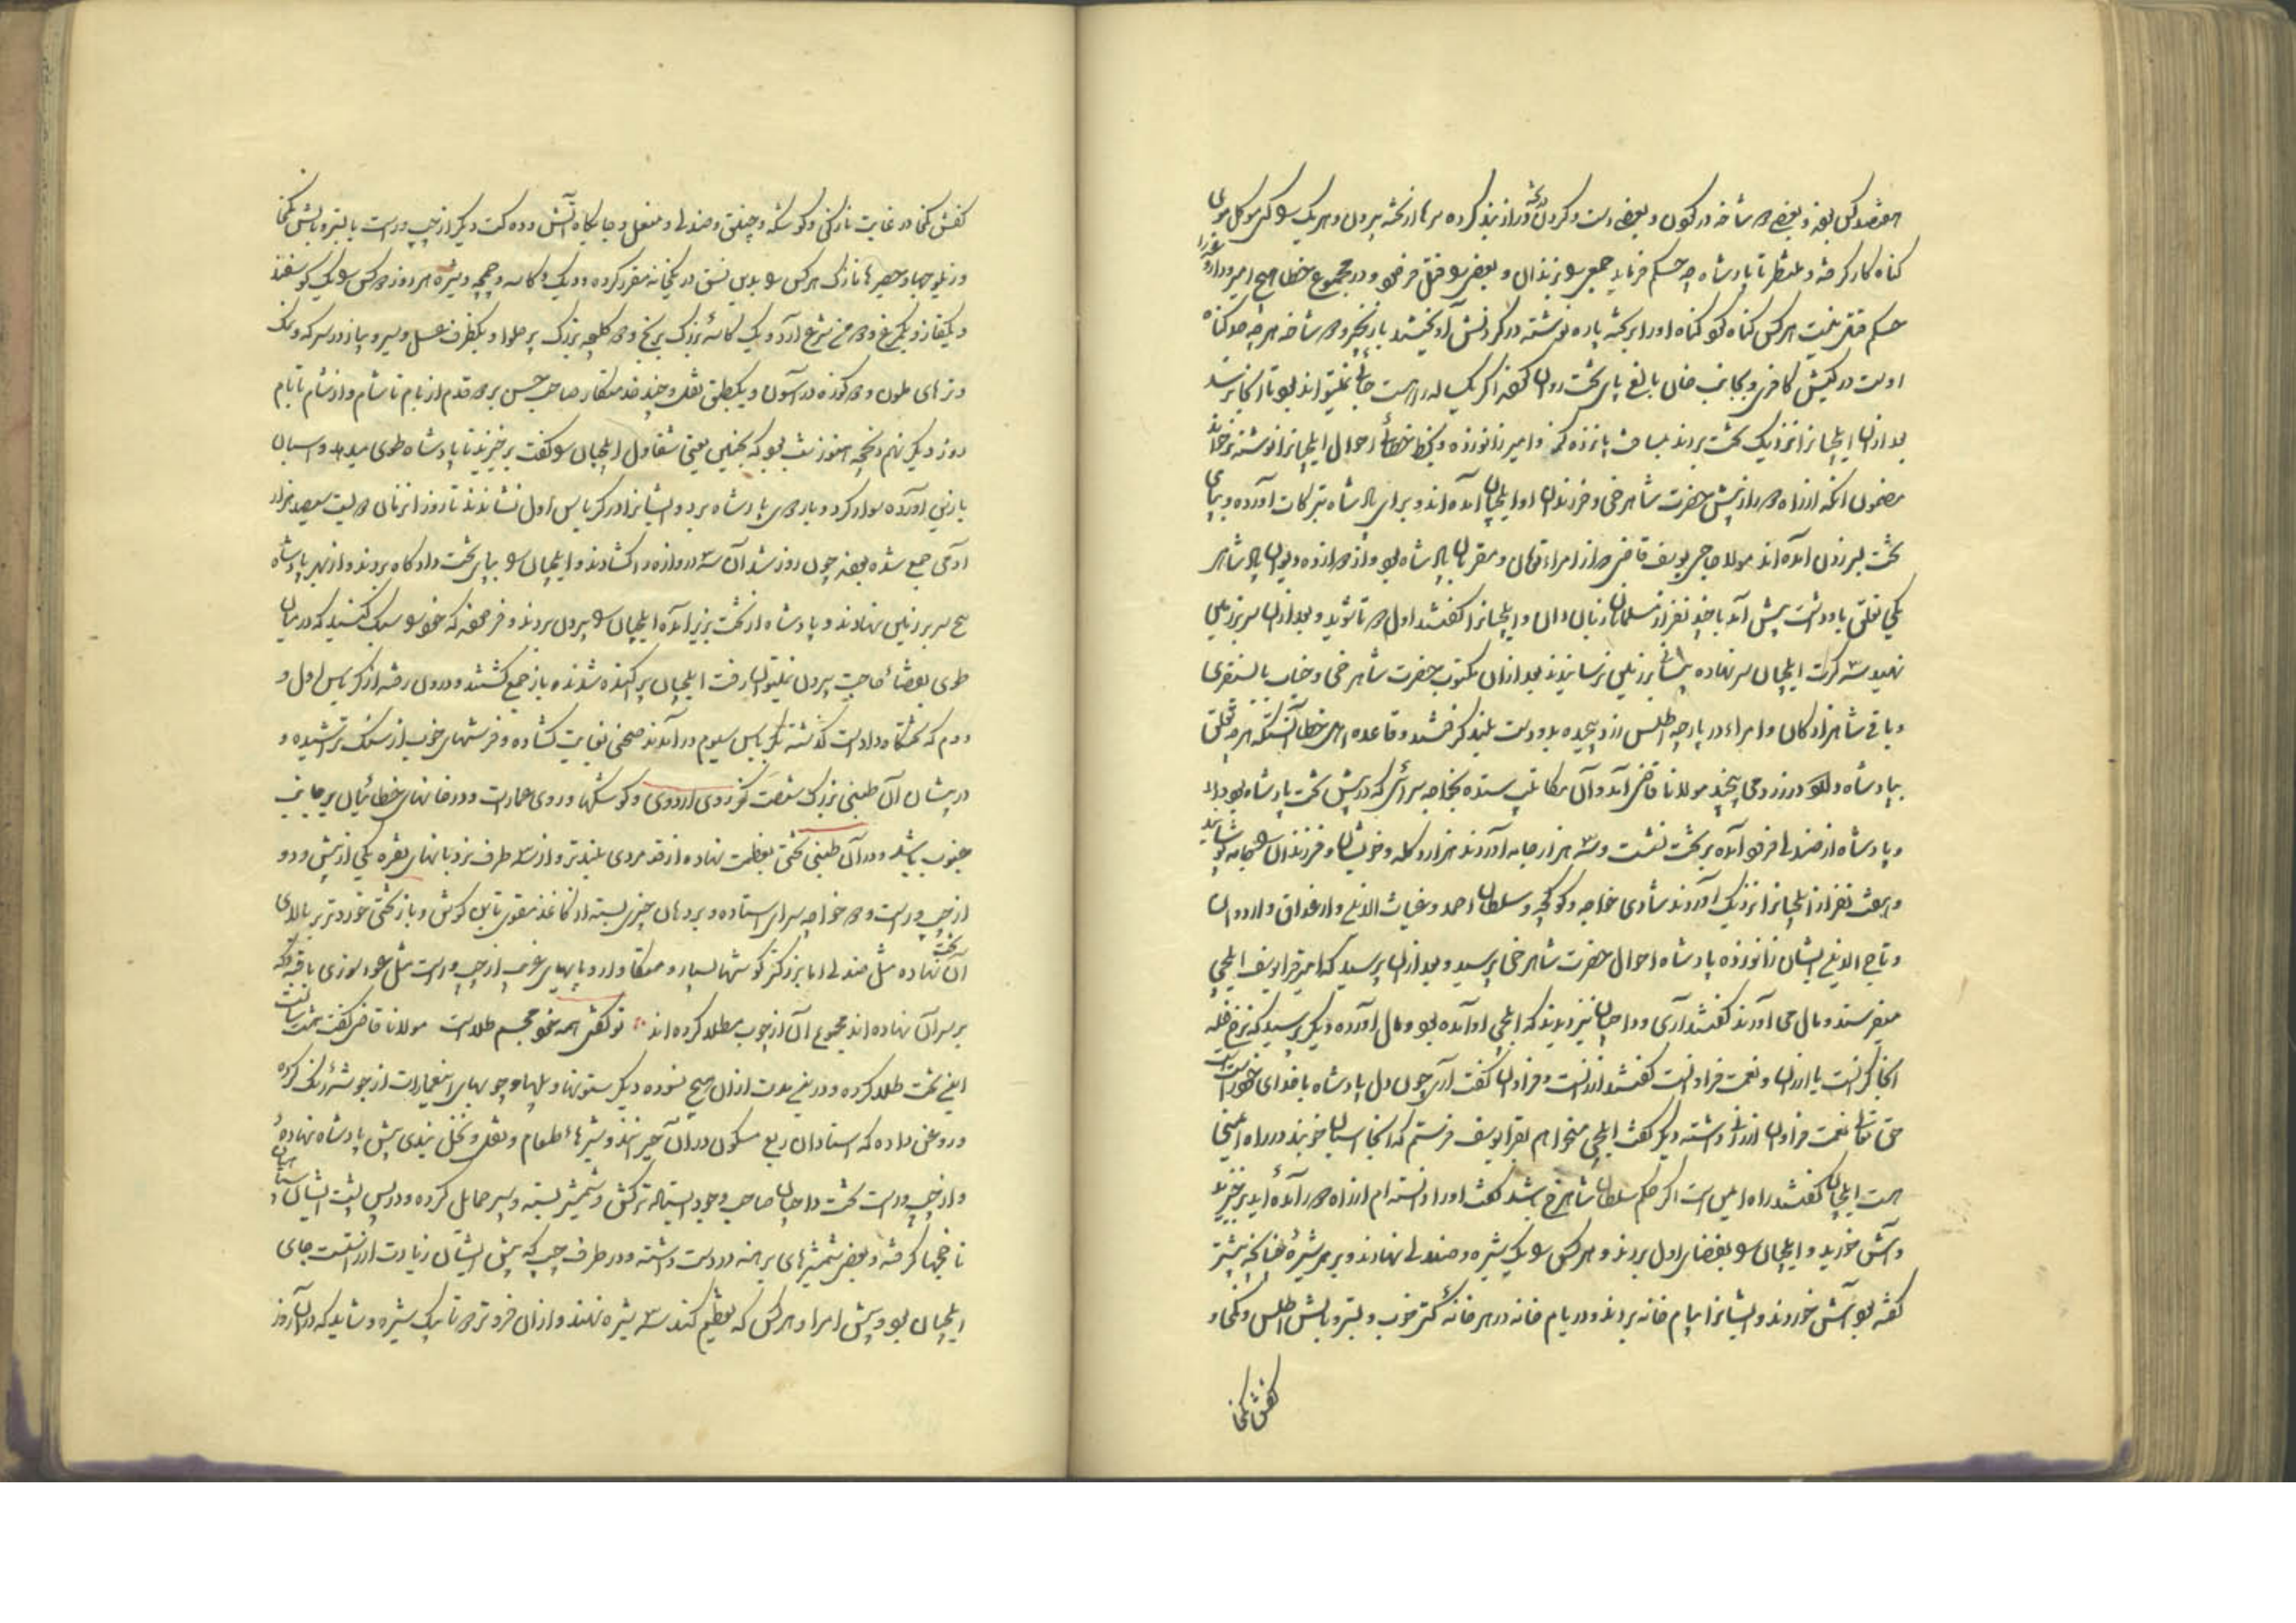 هفتصد کس بودند و بعضی دو شاخه در گردن و بعضی دست و گردن در تخته دراز بند کرده سرها از تخته بیرون و هر یک را کسی موکل موی
گناه کار گرفته و منتظر تا پادشاه چه حکم فرماید جمعی را بزندان و بعضی را قتل فرمود و در مجموع خطا هیچ امیر و داروغه را
حکم قتل نیست هر کس گناه کند گناه او را بر تخته پاره نوشته در گردنش آویخته با زنجیر و دو شاخه هر چه حد گناه
اوست در کیش کافری و بجانب خان بالغ پای تخت روان کنند اگر یک ساله راه است جائی نمیتواند بود تا آنجا برسد
بعد ازان ایلچیانرا نزدیک تخت بردند بمسافت پانزده گز و امیر زانو زده و بخط خطائی احوال ایلچیانرا نوشته بر خواند
مضمون آنکه از راه دور از پیش حضرت شاهرخی و فرزندان او ایلچیان آمده اند و برای پادشاه تبرکات آورده و بپای
تخت سر زدن آمده اند مولانا حاجی یوسف قاضی که از امراء تومان و مقربان پادشاه بود و از دوازده دیوان پادشاه
یکی تعلق باو داشت پیش آمد با چند نفر از مسلمانان زبان دان و ایلچیانرا گفتند اول دو تا شوید و بعد ازان سر بزمین
نهید سه کرت ایلچیان سر نهاده پیشانی بزمین نرسانیدند بعد ازان مکتوب حضرت شاهرخی و جناب بایسنقری
و باقی شاهزادگان و امراء در پارچه اطلس زرد پیچیده بدو دست بلند گرفتند و قاعده اهل خطا آنستکه هر چه تعلق
بپادشاه دارد در زرد می پیچند مولانا قاضی آمد و آن مکاتیب بستده بخواجه سرائی که در پیش تخت پادشاه بود داد
و پادشاه از صندلی فرود آمده بر تخت نشست و سه هزار جامه آوردند هزار دکله و خویشان و فرزندان را جامه پوشانید
و هفت نفر از ایلچیانرا نزدیک آوردند شادی خواجه و کوکجه و سلطان احمد و غیاث الدین و ارغداق و اردوان
و تاج الدین ایشان زانو زده پادشاه احوال حضرت شاهرخی پرسید و بعد ازان پرسید که امیر قرا یوسف ایلچی
میفرستد و مال می آورند گفتند آری و داجیان نیز دیدند که ایلچی او آمده بود و مال آورده دیگر پرسید که نرخ غله
آنجا گرانست یا ارزان و نعمت فراوانست گفتند ارزانست و فراوان گفت آری چون دل پادشاه با خدای خود راست
حق تعالی نعمت فراوان ارزانی داشته دیگر گفت ایلچی میخواهم بقرا یوسف فرستم که آنجا اسبان خوبند در راه ایمنی
هست ایلچیان گفتند راه ایمن است اگر حکم سلطان شاهرخ باشد گفت او را دانسته ام از راه دور آمده اید برخیزید
و آش خورید و ایلچیان را بفضای اول بردند و هر کس را یک شیره و صندلی نهادند و بر هر شیرهٔ چنانچه پیشتر
گفته بود آش خوردند و ایشانرا بیام خانه بردند و در یام خانه در هر خانه کتی خوب و بستر و بالش اطلس و کمخا و
کفش کمخا
کفش کمخا در غایت نازکی و کوشکه و چیغق و صندلی و منقل و جایگاه آتش و ده کت دیگر از چپ و راست با بستر و بالش کمخا
و زیلوچها و حصیرها نازک هر کس را بدین نسق در یکخانه مقرر کرده و دیگ و کاسه و چمچه و شیره هر روز ده کس را یک گوسفند
و یک قاز و یک مرغ و دو من شرع آرد و یک کاسهٔ بزرگ برنج و دو کلچه بزرگ پر حلوا و یکظرف عسل و سیر و پیاز در سرکه و نمک
و ترهای ملون و دو کوزه دراسون و یکطبق نقل و چند خدمتکار صاحب حسن بر دو قدم از بام تا شام و از شام تا بام
روز دیگر نهم ذیحجه هنوز شب بود که سکجین یعنی شقاول ایلچیان را گفت برخیزید تا پادشاه طوی میدهد و اسبان
با زین آورده سوار کرد و بار دوی پادشاه برد و ایشانرا در کریاس اول نشاندند تا روز از زمان دویست سیصد هزار
آدمی جمع شده بودند چون روز شد آن سه دروازه را گشادند و ایلچیان را بپای تخت دادگاه بردند و از بهر پادشاه
پنج سر بر زمین نهادند و پادشاه از تخت بزیر آمده ایلچیان را بیرون بردند و فرمودند که خود را سبک کنید که در میان
طوی بقضاء حاجت بیرون نمیتوان رفت ایلچیان پراکنده شدند و باز جمع گشتند و درون رفته از کریاس اول و
دوم که تختگاه دادست گذشته بکریاس سیوم در آمدند صحنی بغایت گشاده و فرشهای خوب از سنگ تراشیده و
در پیشان آن طنبی بزرگ شصت گز روی اردوی و کوشکها و روی عمارت و در خانهای خطائیان بر جانب
جنوب باشد و در آن طنبی تختی بعظمت نهاده از قد مردی بلندتر و از سه طرف نردبانهای نقره یکی از پیش و دو
از چپ و راست و دو خواجه سرای ایستاده و بر دهان چیزی بسته از کاغذ مقوی تا بن گوش و باز تختی خوردتر بر بالای
آن تخت نهاده مثل صندلی اما بزرگتر گوشها بسیار و متکا وار و پایهای غریب از چپ و راست مثل عود سوزی با قبه که
بر سر آن نهاده اند مجموع آن از چوب مطلا کرده اند تو گفتی همه خود مجسم طلاست مولانا قاضی گفت هشت سالست
این تخت طلا کرده و درین مدت ازان هیچ نسوده دیگر ستونها و پلها و چوبهای این عمارات از جوشهٔ رنگ کرده
و روغن داده که استادان ربع مسکون دران حیرانند و شیرهاء طعام و نقل و نخل بندی پیش پادشاه نهاده
و از چپ و راست تخت داجیان صاحب وجود ایستاده ترکش و شمشیر بسته و سپر حمایل کرده و در پس پشت ایشان سپاهیان
ناخجها گرفته و بعضی شمشیرهای برهنه در دست داشته و در طرف چپ که پیش ایشان زیادت از راستست جای
ایلچیان بود و پیش امرا و هر کس که تعظیم کنند سه شیره نهند و ازان فروتر دو تا یک شیره و شاید که دران روز